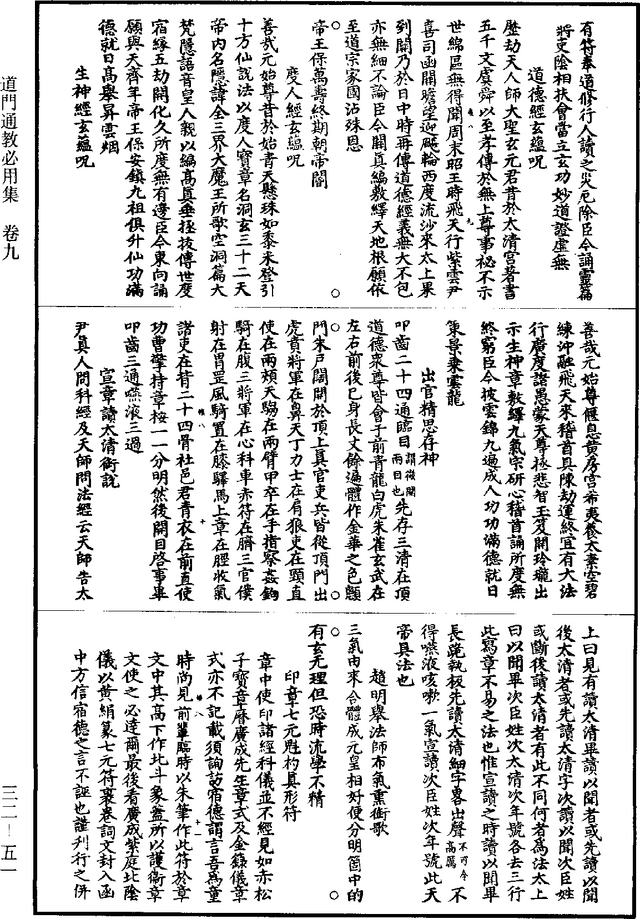 有符奉道修行人讀之災厄除臣今誦靈篇
將吏陰相扶會當立玄功妙道證虛無
道德經玄蘊呪
歷劫天人師大聖玄元君昔於太清宮著書
五千文虞舜以至孝傳於無上尊事祕不示
世綿區無得聞周末昭王時飛天行紫雲尹
喜司函關瞻望迎飈輪西度流沙來太上果
到關乃於日中時再傳道德經義無大不包
亦無細不論臣今開真編敷繹天地根願依
至道宗家國沾殊恩
帝王保萬壽終期朝帝閽
度人經玄蘊呪
善哉元始尊昔於始青天懸珠如黍米登引
十方仙說法以度人寶章名洞玄三十二天
帝內名隱諱全三界大魔王所歌空洞篇大
梵隱語音皇人親以編高真垂拯拔傳世度
宿緣五劫開化久所度無有邊臣今東向誦
願與天齊年帝王保安鎮九祖俱升仙功滿
德就日高舉昇雲烟
生神經玄蘊呪
善哉元始尊偃息黃房宮希夷養太素空碧
練沖融飛天來稽首具陳劫運終宜有大法
行廣度諸愚蒙天尊極悲智玉笈開玲瓏出
示生神章敷繹九氣宗研心稽首誦所度無
終窮臣今披雲錦九遍成人功功滿德就日
策景乘雲龍
出官精思存神
叩齒二十四通臨目謂後開兩目也先存三清在頂
道德眾尊皆會于前青龍白虎朱雀玄武在
左右前後已身長丈餘遍體作金華之色顖
門朱戶闊開於頂上真官吏兵皆從頂門出
虎賁將軍在鼻天丁力士在肩狼吏在頸直
使在兩頰天騶在兩臂甲卒在手指察姦鉤
騎在腹三將軍在心科車赤符在臍三官僕
射在胃罡風騎置在膝驛馬上章在脛收氣
諸吏在背二十四骨社邑君青衣在前直使
功曹擎持章桉一一分明然後開目啓事畢
叩齒三通嚥液三過
宣章讀太清銜說
尹真人問科經及天師問法經云天師告太
上曰見有讀太清畢讀以聞者或先讀以聞
後太清者或先讀太清字次讀以聞次臣姓
或斷後讀太清者有此不同何者為法太上
曰以聞畢次臣姓次太清次年號各去三行
此寫章不易之法也惟宣讀之時讀以聞畢
長跪執板先讀太清細字畧出聲不可令高厲不
得嚥液咳嗽一氣宣讀次臣姓次年號此天
帝具法也
趙明舉法師布氣熏銜歌
三氣由來合體成元皇相好便分明箇中的
有玄元理但恐時流學不精
印章七元魁杓真形符
章中使印諸經科儀並不經見如赤松
子寶章曆廣成先生章式及金籙儀章
式亦不記載須詢訪宿德謂言吾為童
時尚見前輩臨時以朱筆作此符於章
文中其高下作北斗象蓋所以護衛章
文使之必達爾最後看廣成紫庭北陰
儀以黃絹篆七元符裹卷詞文封入函
中方信宿德之言不誣也謹刊行之併
道門通教必用集　卷九
三二——五一